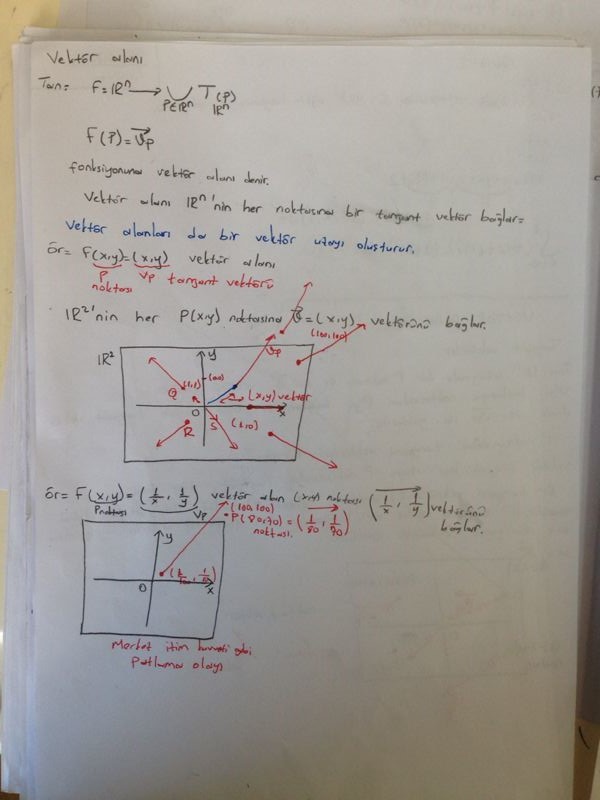 Vektör alanı
Tan= F=ℝⁿ → ∪ T(P)
P∈ℝⁿ ℝⁿ
F(P)=v⃗p
fonksiyonuna vektör alanı denir.
Vektör alanı ℝⁿ'nin her noktasına bir tanjant vektör bağlar=
Vektör alanları da bir vektör uzayı oluşturur.
ör= F(x,y)=(x,y) vektör alanı
P noktası vp tanjant vektörü
ℝ²'nin her P(x,y) noktasına =(x,y) vektörünü bağlar.
(100,100)
ℝ² y vp
Q (1,1)
O (x,y) vektör x
R S (1,0)
ör= F(x,y)=(1/x, 1/y) vektör alanı (x,y) noktası (1/x, 1/y) vektörünü bağlar.
P noktası vp (100,100)
P(80,70)=(1/80, 1/70)
noktası.
y
O x
Merkez itim kuvveti gibi
Patlama olayı